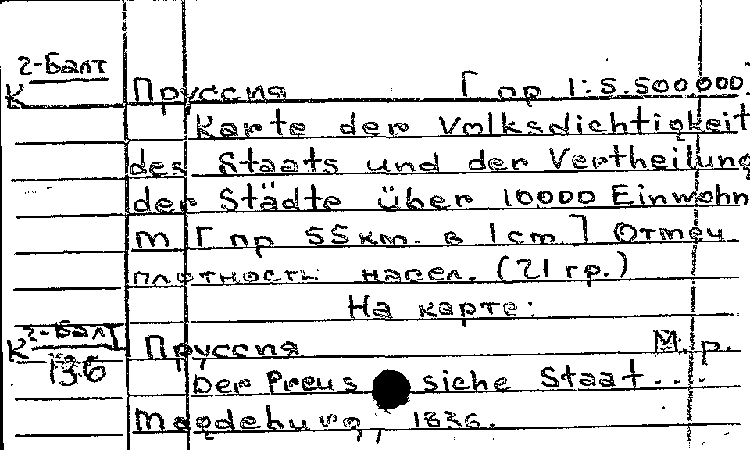 2-Балт
К Пруссия [пр 1:5.500000.
Karte der Volksdichtigkeit
des Staats und der Vertheilung
der Städte über 10000 Einwohn
m [пр 55км. в 1cm] Отмеч
плотность насел. (21 гр.)
На карте:
2-Балт
К Пруссия М. р.
136
Der Preus siche Staat...
Magdeburg, 1836.